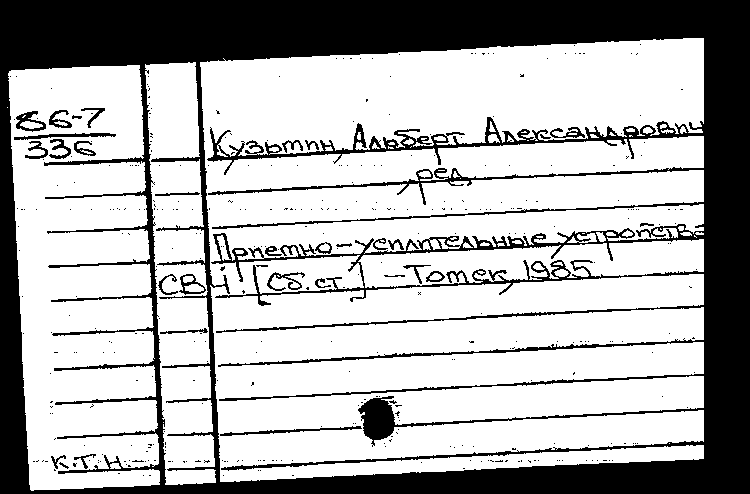 86-7
336
Кузьмин, Альберт Александрович
, ред.
Приемно-усилительные устройства
СВЧ. [Сб. ст.] - Томск, 1985.
К.Т.Н.